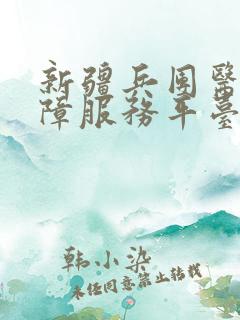 新疆兵团醫
障服務平臺
韩小染
未任同意禁止转载